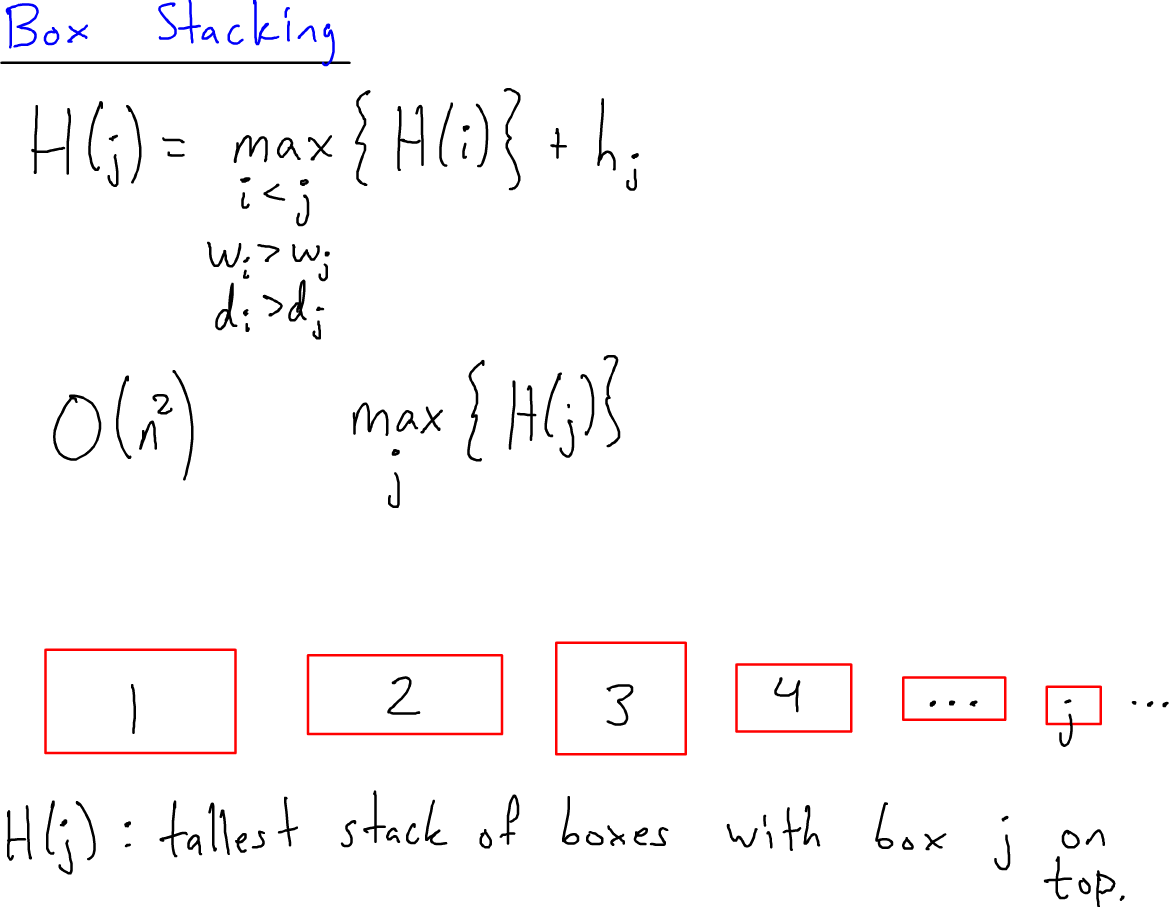 Box Stacking
H(j) = max {H(i)} + hj
i < j
wi > wj
di > dj
O(n²) max {H(j)}
j
1 2 3 4 ... j ...
H(j) : tallest stack of boxes with box j on
top.